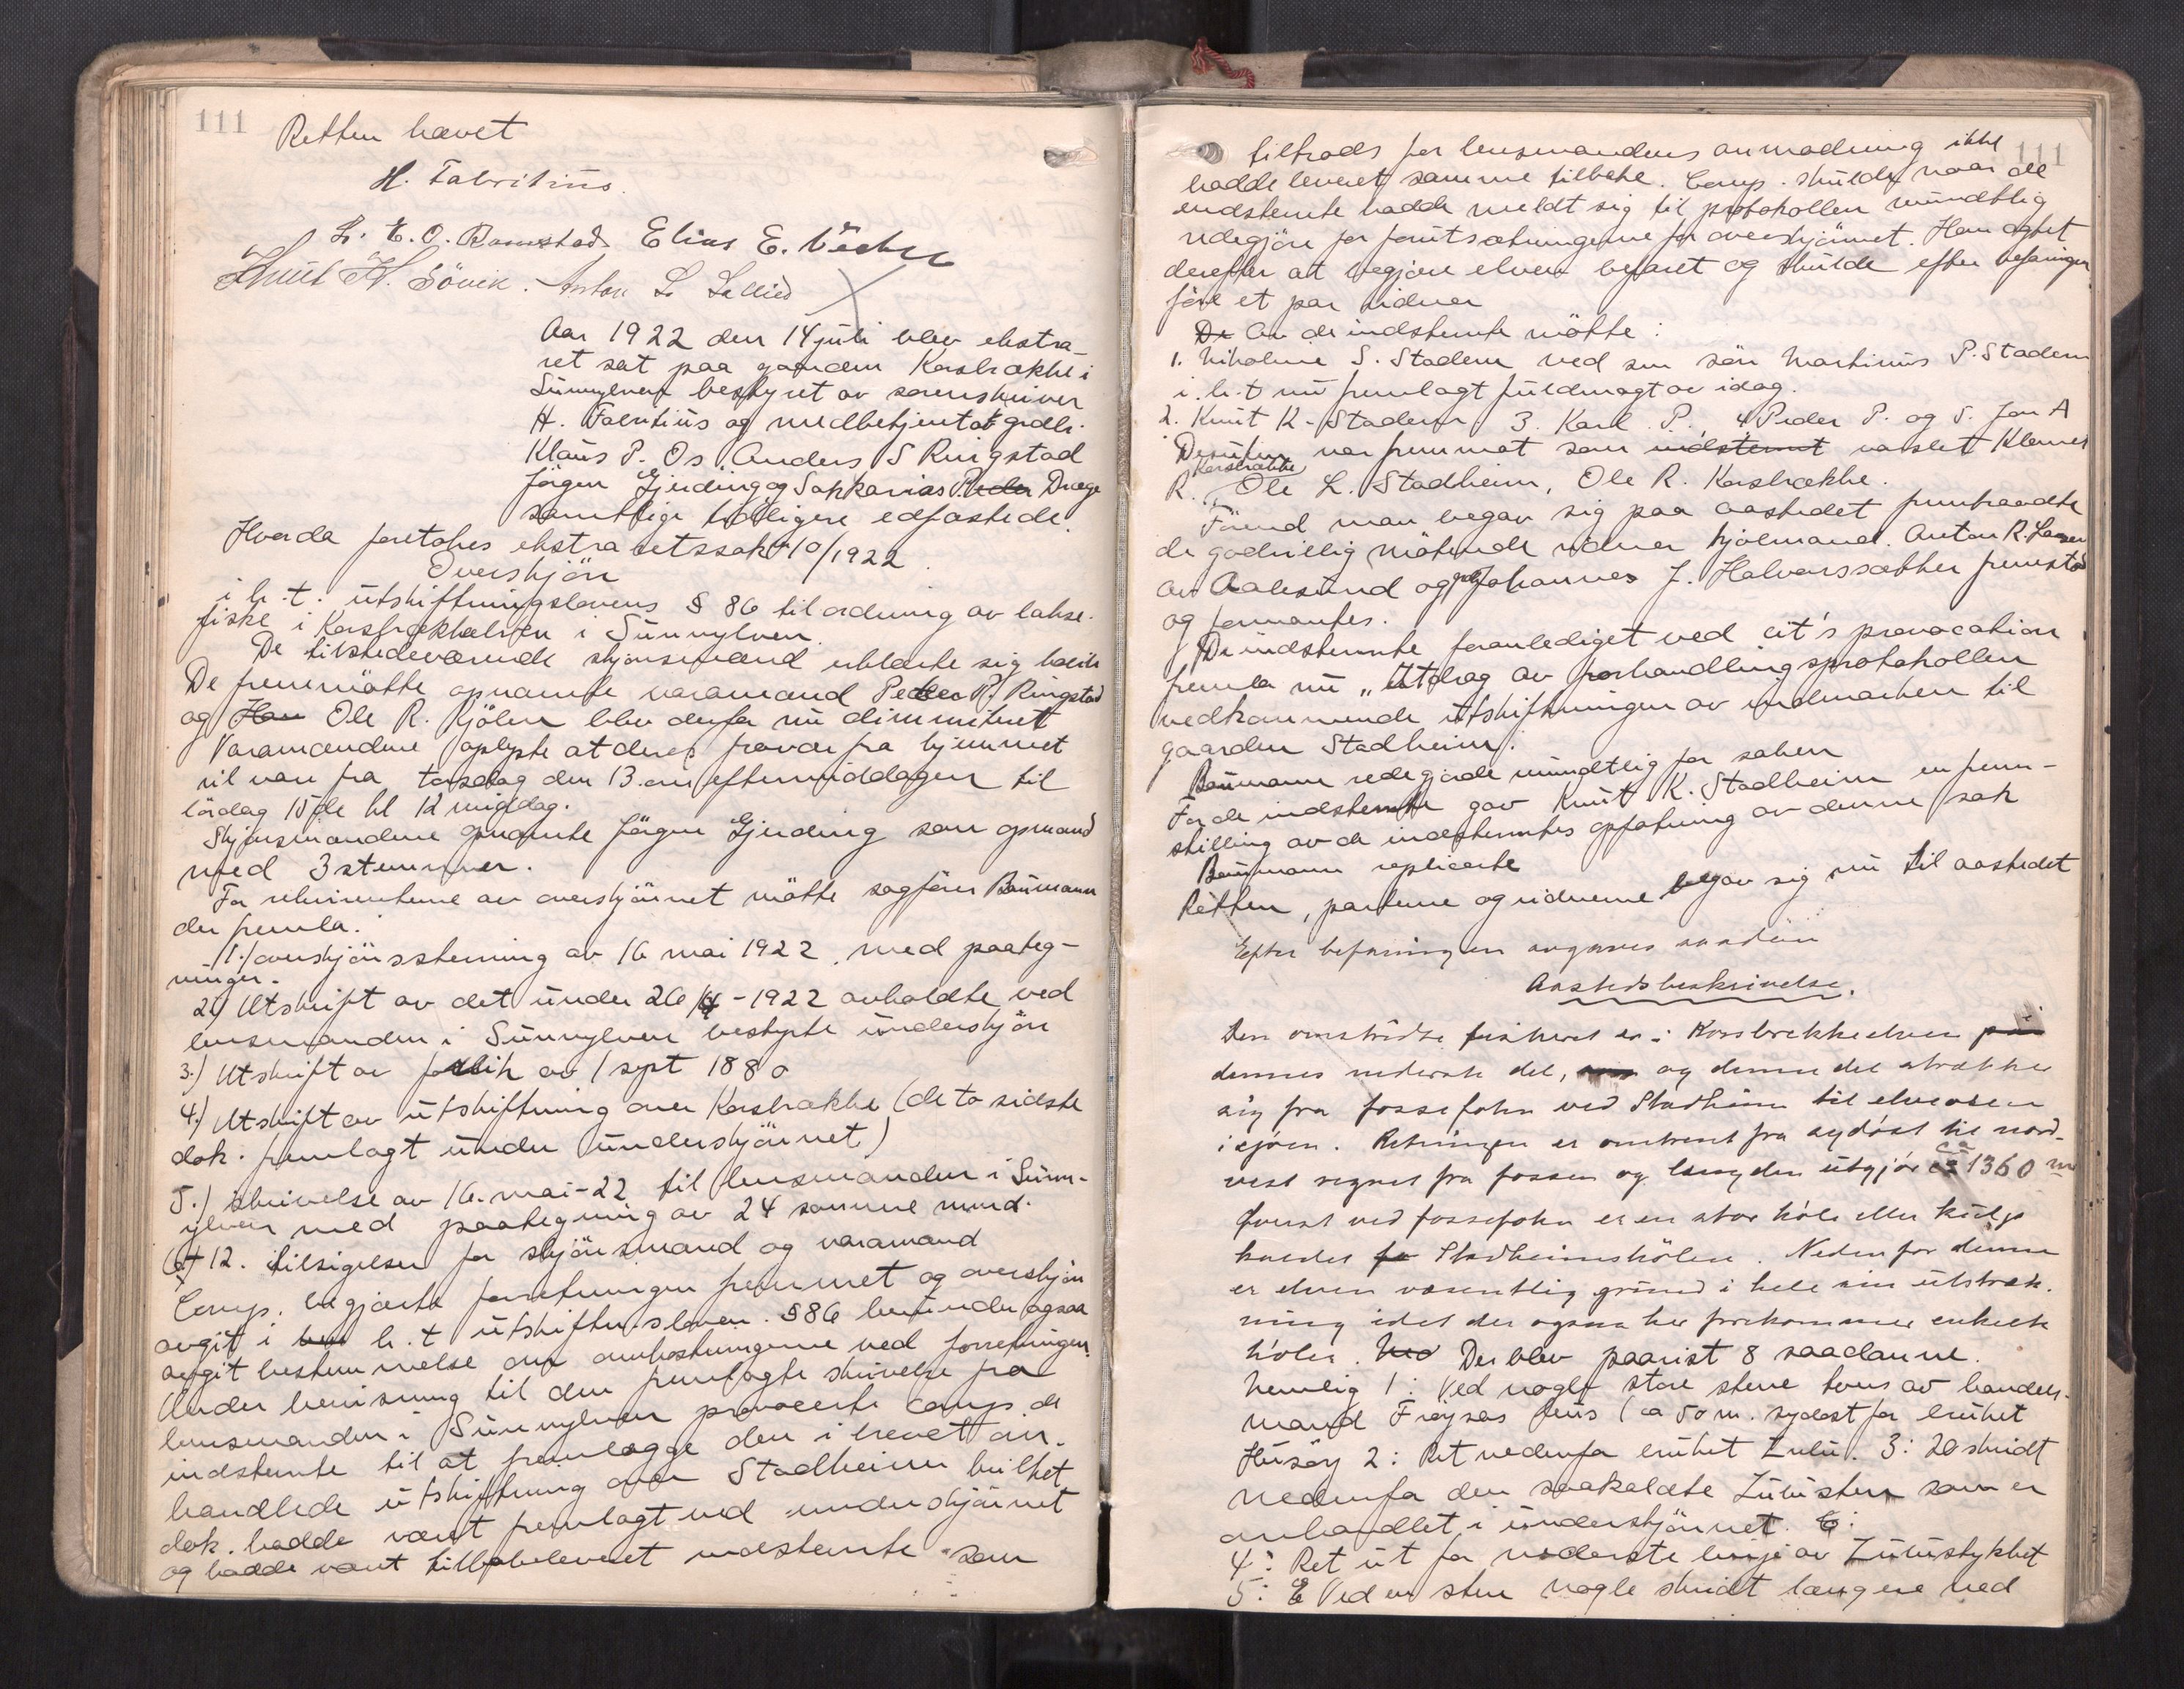 111
Retten hævet
H. Fabritius.
L. E. O. Elias E.
Knut K. Sövik. Anton L.
Aar 1922 den 14 juli blev ekstra-
ret sat paa gaarden Korsbrække i
Sunnylven bestyret av sorenskriver
H. Fabritius og meddbetjent av grdbr.
Klaus P. Os Anders S Ringstad
Jörgen Gjerding og Sakkarias Peder Drage
samtlige tidligere edfæstede.
Hvorda foretokes ekstraretssak 10/1922.
Overskjön
i h.t. utskiftningslovens § 86 til ordning av lakse-
fiske i Korsbrekkelven i Sunnylven.
De tilstedeværende skjönsmænd erklærte sig habile
De fremmötte opnævnte varamænd Peder P. Ringstad
og Han Ole R. Kjölen blev derfor nu dimmitteret
Varamændene oplyste at deres fravær fra hjemmet
vil vare fra torsdag den 13. om eftermiddagen til
lördag 15de kl 12 middag.
Skjönsmændene opnævnte Jörgen Gjerding som opmand
med 3 stemmer.
For rekvirenterne av overskjönnet mötte sagförer Baumann
der fremla:
1.) overskjönsstevning av 16 mai 1922, med paateg-
ninger.
2) Utskrift av det under 26/4 - 1922 avholdte ved
lensmanden i Sunnylven bestyrte underskjön
3.) Utskrift av forlik av 1 sept 1880
4.) Utskrift av utskiftning over Korsbrække (de to sidste
dok. fremlagt under underskjönnet)
5.) Skrivelse av 16. mai-22 til lensmanden i Sunn-
ylven med paategning av 24 samme mnd.
6-12. tilsigelser for skjönsmænd og varamænd
Comp. begjærte forretningen fremmet og overskjön
avgit i hen h.t utskiftn.sloven. §86 herunder ogsaa
avgit bestemmelse om omkostningerne ved forretningen.
Under henvisning til den fremlagte skrivelse fra
lensmanden i Sunnylven provocerte comp. de
indstevnte til at fremlægge den i brevet om-
handlede utskiftning over Stadheim hvilket
dok. hadde været fremlagt ved underskjönnet
og hadde været tilbakeleveret indstevnte som
111
tiltrods for lensmandens anmodning ikke
hadde leveret samme tilbake. Comp. skulde naar de
indstevnte hadde meldt sig til protokollen mundtlig
redegjöre for forutsætningerne for overskjönnet. Han agtet
derefter at begjære elven befaret og skulde efter befaringen
före et par vidner
De Av de indstevnte mötte:
1. Nikoline S. Stadem ved sin sön Martinus P. Stadem
i h.t nu fremlagt fuldmagt av idag.
2. Knut K. Stadem 3. Karl P., 4 Peder P. og 5. Jon A
Desuten var fremmöt som indstevnt varslet Klemet
R. Korsbrække, Ole L. Stadheim, Ole R. Korsbrække.
Förend man begav sig paa aastedet fremraadte
de godvillig mötende vidner hjolmand. Anton R. Larsen
av Aalesund og grdb Johannes J. Halvorssætter fremstod
og formantes.
De indstevnte foranlediget ved cit's provocation
fremla nu "Utdrag av forhandlingsprotokollen
vedkommende utskiftningen av indmarken til
gaarden Stadheim.
Baumann redegjorde mundtlig for saken
For de indstevnte gav Knut K. Stadheim en frem-
stilling av de indstevntes opfatning av denne sak
Baumann replicerte
Retten, parterne og vidnerne begav sig nu til aastedet
Efter befaringen avgaves saadan
Aastedsbeskrivelse.
Den omstridte fiskeret er i Korsbrekkeelven paa
dennes nederste del, som og denne del strækker
sig fra fossefoten ved Stadheim til elveosen
i sjöen. Retningen er omtrent fra sydöst til nord-
vest regnet fra fossen og længden utgjör ca 1360 m
Överst ved fossefoten er en stor höle eller kulp
kaldet fo Stadheimshölen. Nedenfor denne
er elven væsentlig grund i hele sin utstræk-
ning idet der ogsaa her forekommer enkelte
höler. Ved Der blev paavist 8 saadanne.
Nemlig 1: Ved nogle store stene tvers av handels-
mand Fröysas hus (ca 50 m. sydöst for bruket
Husöy 2: Ret nedenfor bruket Zulu. 3: 20 skridt
nedenfor den saakaldte Zulusten som er
omhandlet i underskjönnet. 6:
4: Ret ut for nederste linje av Zulustykket
5: E Ved en sten nogle skridt længere ned